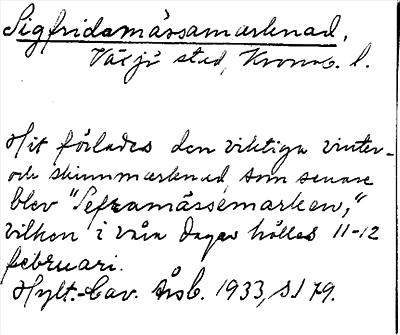 Sigfridsmässamarknad,
Växjö stad, Kronob. l.
Hit förlades den viktiga vinter-
och skinnmarknad, som senare
blev "Seframässemarken,"
vilken i våra dagar hålles 11-12
februari.
Hylt.-Cav. Årsb. 1933, s 179.